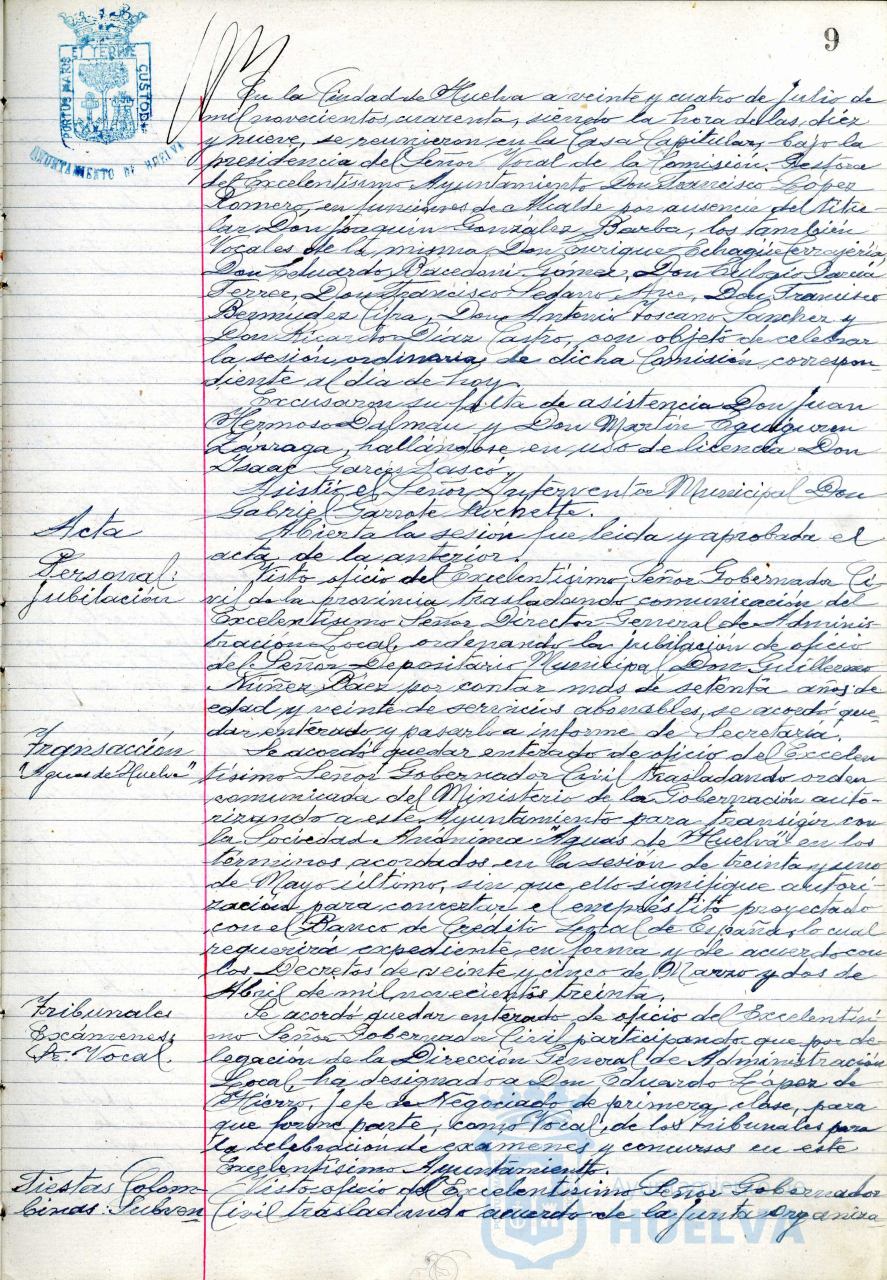 9
PORTUS MARIS ET TERRE CUSTODIA
AYUNTAMIENTO DE HUELVA
En la Ciudad de Huelva a veinte y cuatro de Julio de
mil novecientos cuarenta, siendo la hora de las diez
y nueve, se reunieron en la Casa Capitular, bajo la
presidencia del Señor Vocal de la Comisión Gestora
del Excelentísimo Ayuntamiento Don Francisco López
Romero, en funciones de Alcalde por ausencia del titu-
lar Don Joaquín González Barba, los también
Vocales de la misma, Don Enrique Echagüe Cerrajería,
Don Eduardo Racedoni Gómez, Don Eulogio García
Ferrer, Don Francisco Sedano Arce, Don Francisco
Bermudez Cifra, Don Antonio Toscano Sanchez y
Don Ricardo Díaz Castro, con objeto de celebrar
la sesión ordinaria de dicha Comisión, correspon-
diente al dia de hoy.
Excusaron su falta de asistencia Don Juan
Hermoso Dalmau y Don Martín Eguiguren
Zárraga, hallándose en uso de licencia Don
Isaac Garcés Gascó.
Asistió el Señor Interventor Municipal Don
Gabriel Garrote Pochette.
Acta
Abierta la sesión fue leida y aprobada el
acta de la anterior.
Personal:
Jubilación
Visto oficio del Excelentísimo Señor Gobernador Ci-
vil de la provincia trasladando comunicación del
Excelentísimo Señor Director General de Adminis-
tración Local, ordenando la jubilación de oficio
del Señor Depositario Municipal Don Guillermo
Núñez Báez por contar mas de setenta años de
edad y veinte de servicios abonables, se acordó que-
dar enterado y pasarlo a informe de Secretaría.
Transacción
"Aguas de Huelva"
Se acordó quedar enterado de oficio del Excelen-
tísimo Señor Gobernador Civil trasladando orden
comunicada del Ministerio de la Gobernación auto-
rizando a este Ayuntamiento para transigir con
la Sociedad Anónima "Aguas de Huelva" en los
términos acordados en la sesión de treinta y uno
de Mayo último, sin que ello signifique autori-
zación para concertar el empréstito proyectado
con el Banco de Crédito Local de España, lo cual
requerirá expediente en forma y de acuerdo con
los Decretos de veinte y cinco de Marzo y dos de
Abril de mil novecientos treinta.
Tribunales
Exámenes:
Sr. Vocal.
Se acordó quedar enterado de oficio del Excelentísi-
mo Señor Gobernador Civil participando que por de-
legación de la Dirección General de Administración
Local, ha designado a Don Eduardo López de
Hierro, Jefe de Negociado de primera clase, para
que forme parte, como Vocal, de los tribunales para
la celebración de examenes y concursos en este
Excelentísimo Ayuntamiento.
Fiestas Colom-
binas: Subven
Visto oficio del Excelentísimo Señor Gobernador
Civil trasladando acuerdo de la Junta Organiza-
Ayuntamiento de
HUELVA